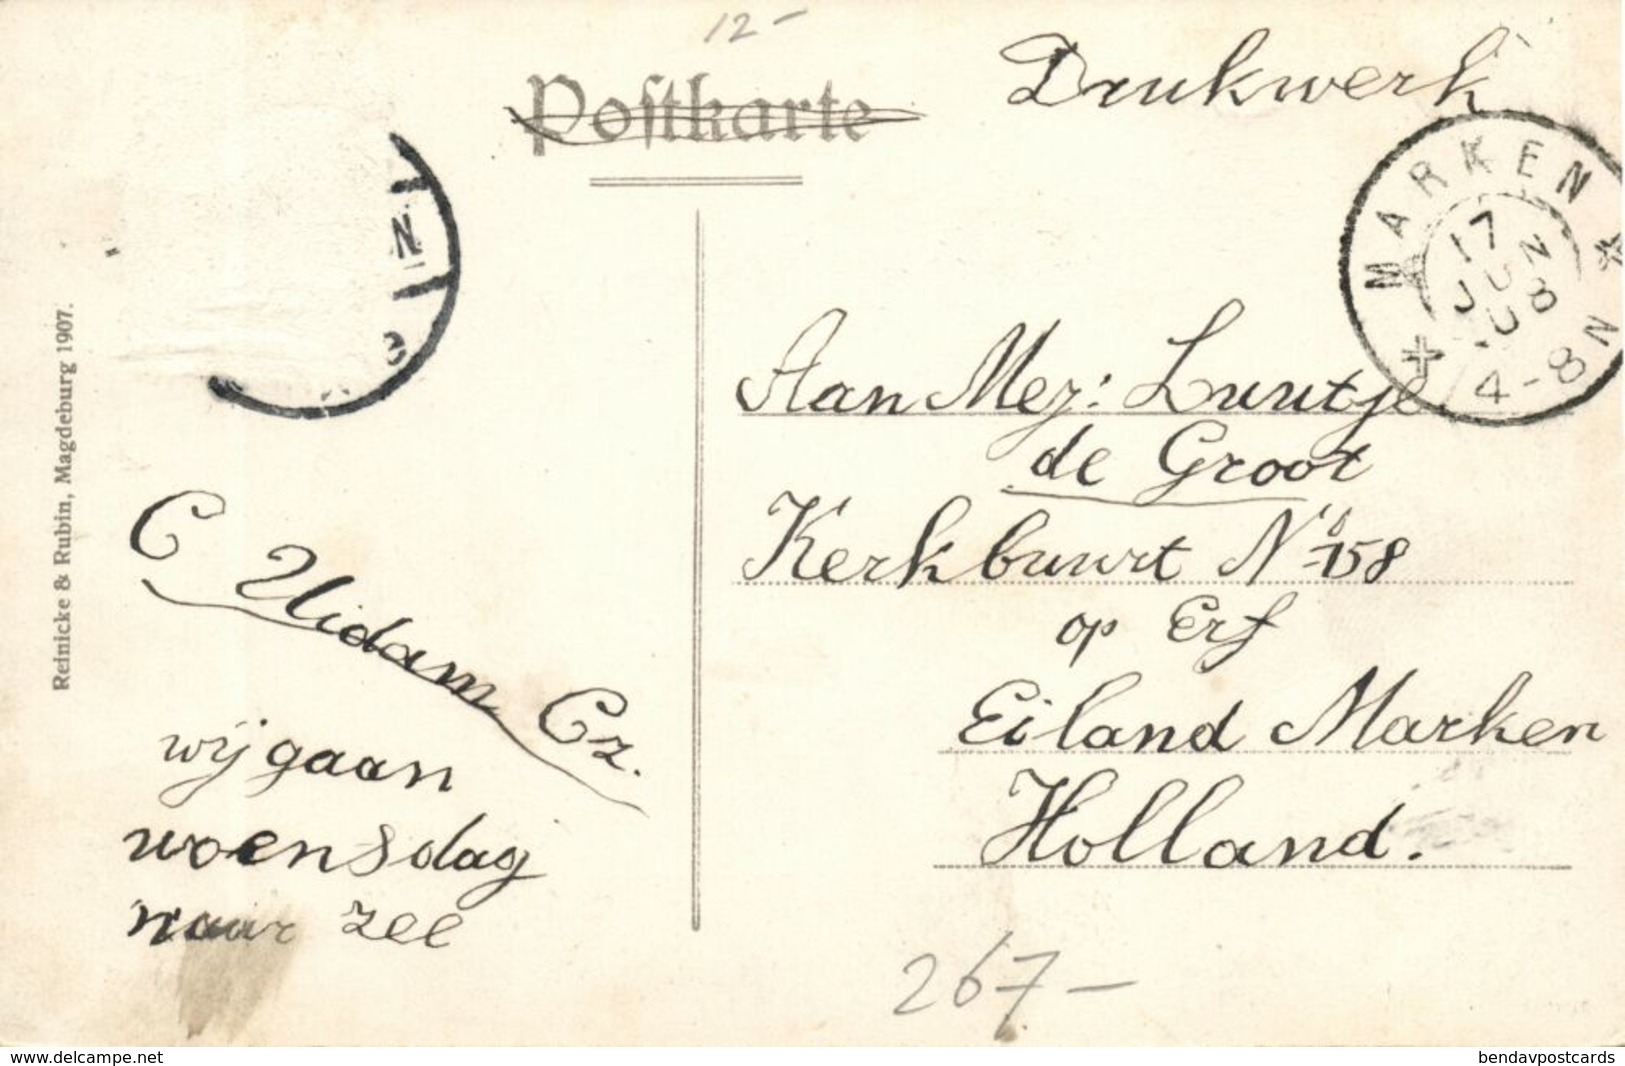 12-
Postkarte
Drukwerk
MARKEN
17
JUN
08
4-8 N
N
e
Reinicke & Rubin, Magdeburg 1907.
Aan Mej: Luutje
de Groot
Kerkbuurt No 158
op Erf
Eiland Marken
Holland.
C Uidam Cz.
wij gaan
woensdag
naar zee
267-
www.delcampe.net
bendavpostcards